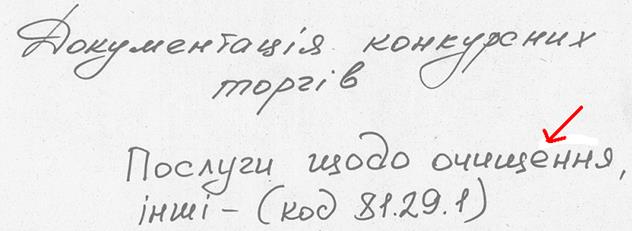 Документація конкурсних
торгів
Послуги щодо очищення,
інші – (код 81.29.1)